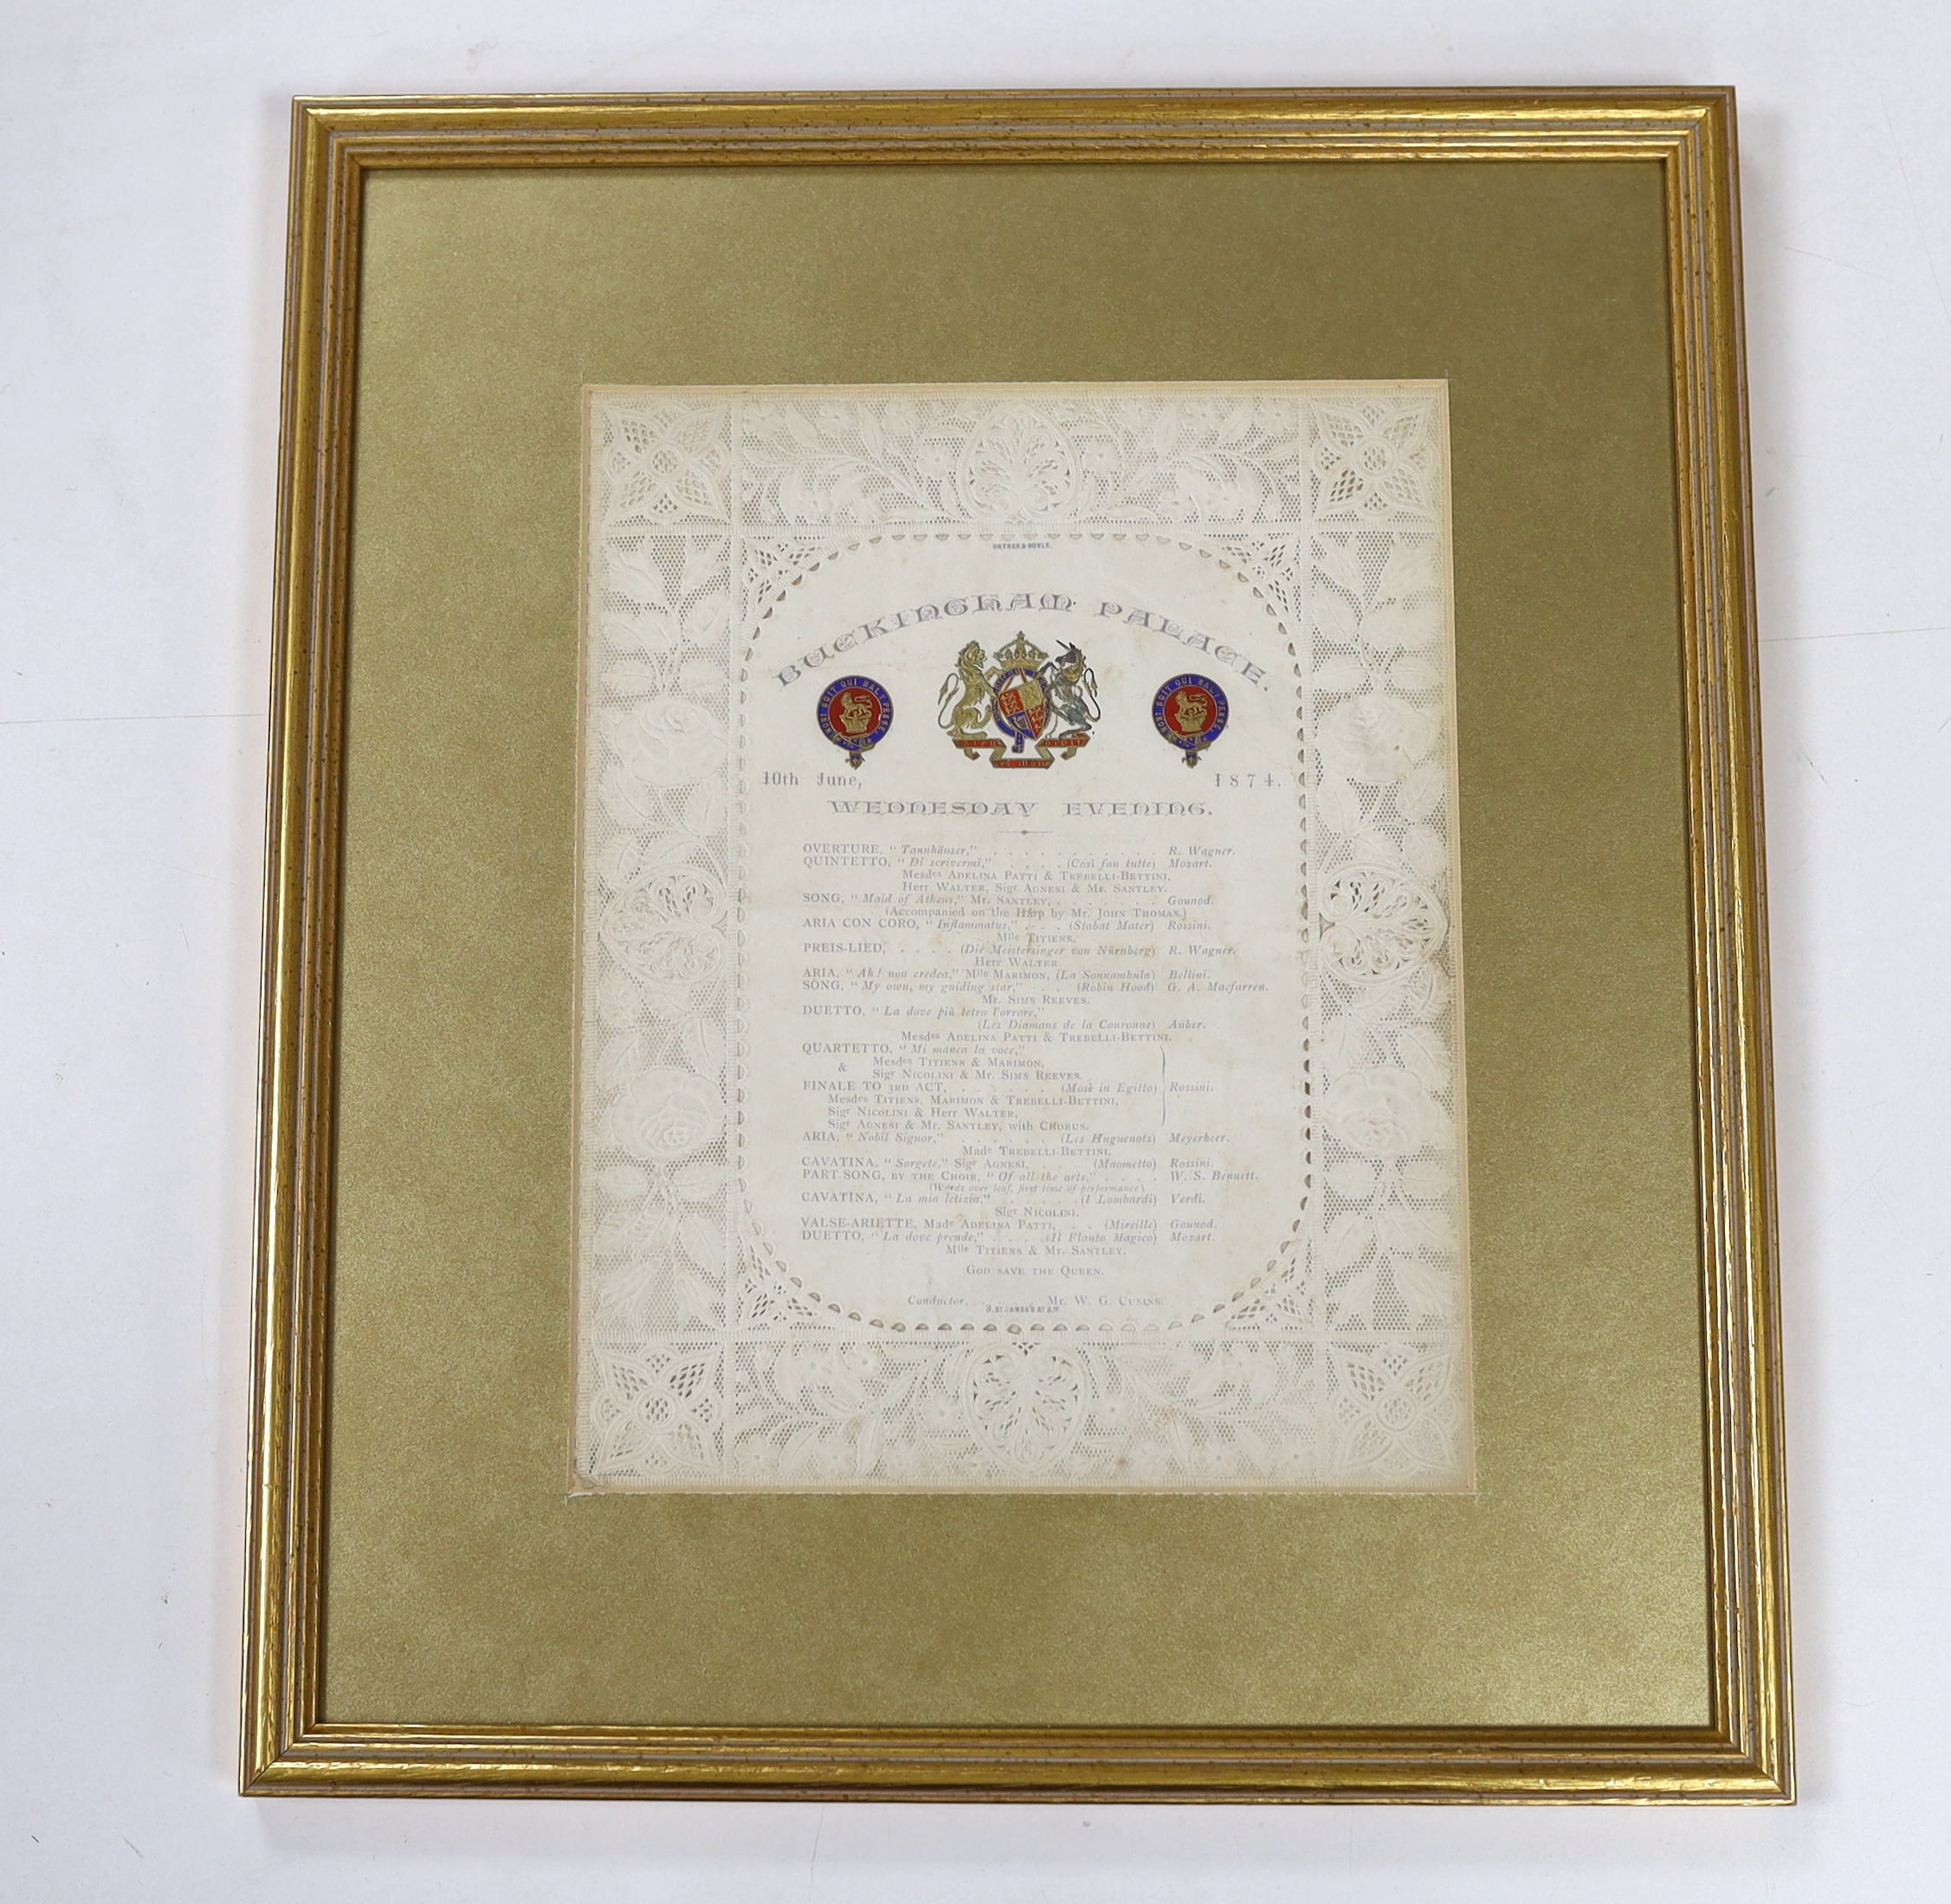 BUCKINGHAM PALACE.
HONI SOIT QUI MAL Y PENSE
HONI SOIT QUI MAL Y PENSE
10th June, 1874.
WEDNESDAY EVENING.
OVERTURE, "Tannhäuser," . . . . . . . . . . . . R. Wagner.
QUINTETTO, "Di scrivermi," . . . . . (Così fan tutte) Mozart.
Mesdes ADELINA PATTI & TREBELLI-BETTINI,
Herr WALTER, Sigr AGNESI & Mr. SANTLEY.
SONG, "Maid of Athens," Mr. SANTLEY, . . . . . . . . Gounod.
(Accompanied on the Harp by Mr. JOHN THOMAS.)
ARIA CON CORO, "Inflammatus," . . . (Stabat Mater) Rossini.
Mlle TITIENS.
PREIS-LIED, . . . . (Die Meistersinger von Nürnberg) R. Wagner.
Herr WALTER.
ARIA, "Ah! non credea," Mlle MARIMON, (La Sonnambula) Bellini.
SONG, "My own, my guiding star," . . (Robin Hood) G. A. Macfarren.
Mr. SIMS REEVES.
DUETTO, "La dove più tetro l'orrore,"
(Les Diamans de la Couronne) Auber.
Mesdes ADELINA PATTI & TREBELLI-BETTINI.
QUARTETTO, "Mi manca la voce,"
Mesdes TITIENS & MARIMON,
& Sigr NICOLINI & Mr. SIMS REEVES.
FINALE TO 3RD ACT, . . . . . . (Mosè in Egitto) Rossini.
Mesdes TITIENS, MARIMON & TREBELLI-BETTINI,
Sigr NICOLINI & Herr WALTER,
Sigr AGNESI & Mr. SANTLEY, with CHORUS.
ARIA, "Nobil Signor," . . . . . . (Les Huguenots) Meyerbeer.
Made TREBELLI-BETTINI.
CAVATINA, "Sorgete," Sigr AGNESI, . . . (Maometto) Rossini.
PART SONG, BY THE CHOIR, "Of all the arts," . . . . W. S. Bennett.
(Words over leaf, first time of performance)
CAVATINA, "La mia letizia," . . . . . . (I Lombardi) Verdi.
Sigr NICOLINI.
VALSE-ARIETTE, Made ADELINA PATTI, . . (Mireille) Gounod.
DUETTO, "La dove prende," . . . . (Il Flauto Magico) Mozart.
Mlle TITIENS & Mr. SANTLEY.
GOD SAVE THE QUEEN.
Conductor, Mr. W. G. CUSINS.
3, ST JAMES'S ST S.W.